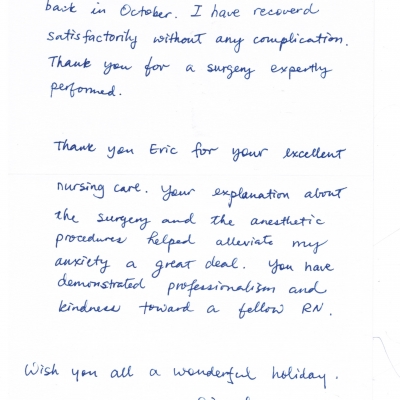 back in October. I have recoverd
satisfactorily without any complication.
Thank you for a surgery expertly
performed.
Thank you Eric for your excellent
nursing care. Your explanation about
the surgery and the anesthetic
procedures helped alleviate my
anxiety a great deal. You have
demonstrated professionalism and
kindness toward a fellow RN.
Wish you all a wonderful holiday.